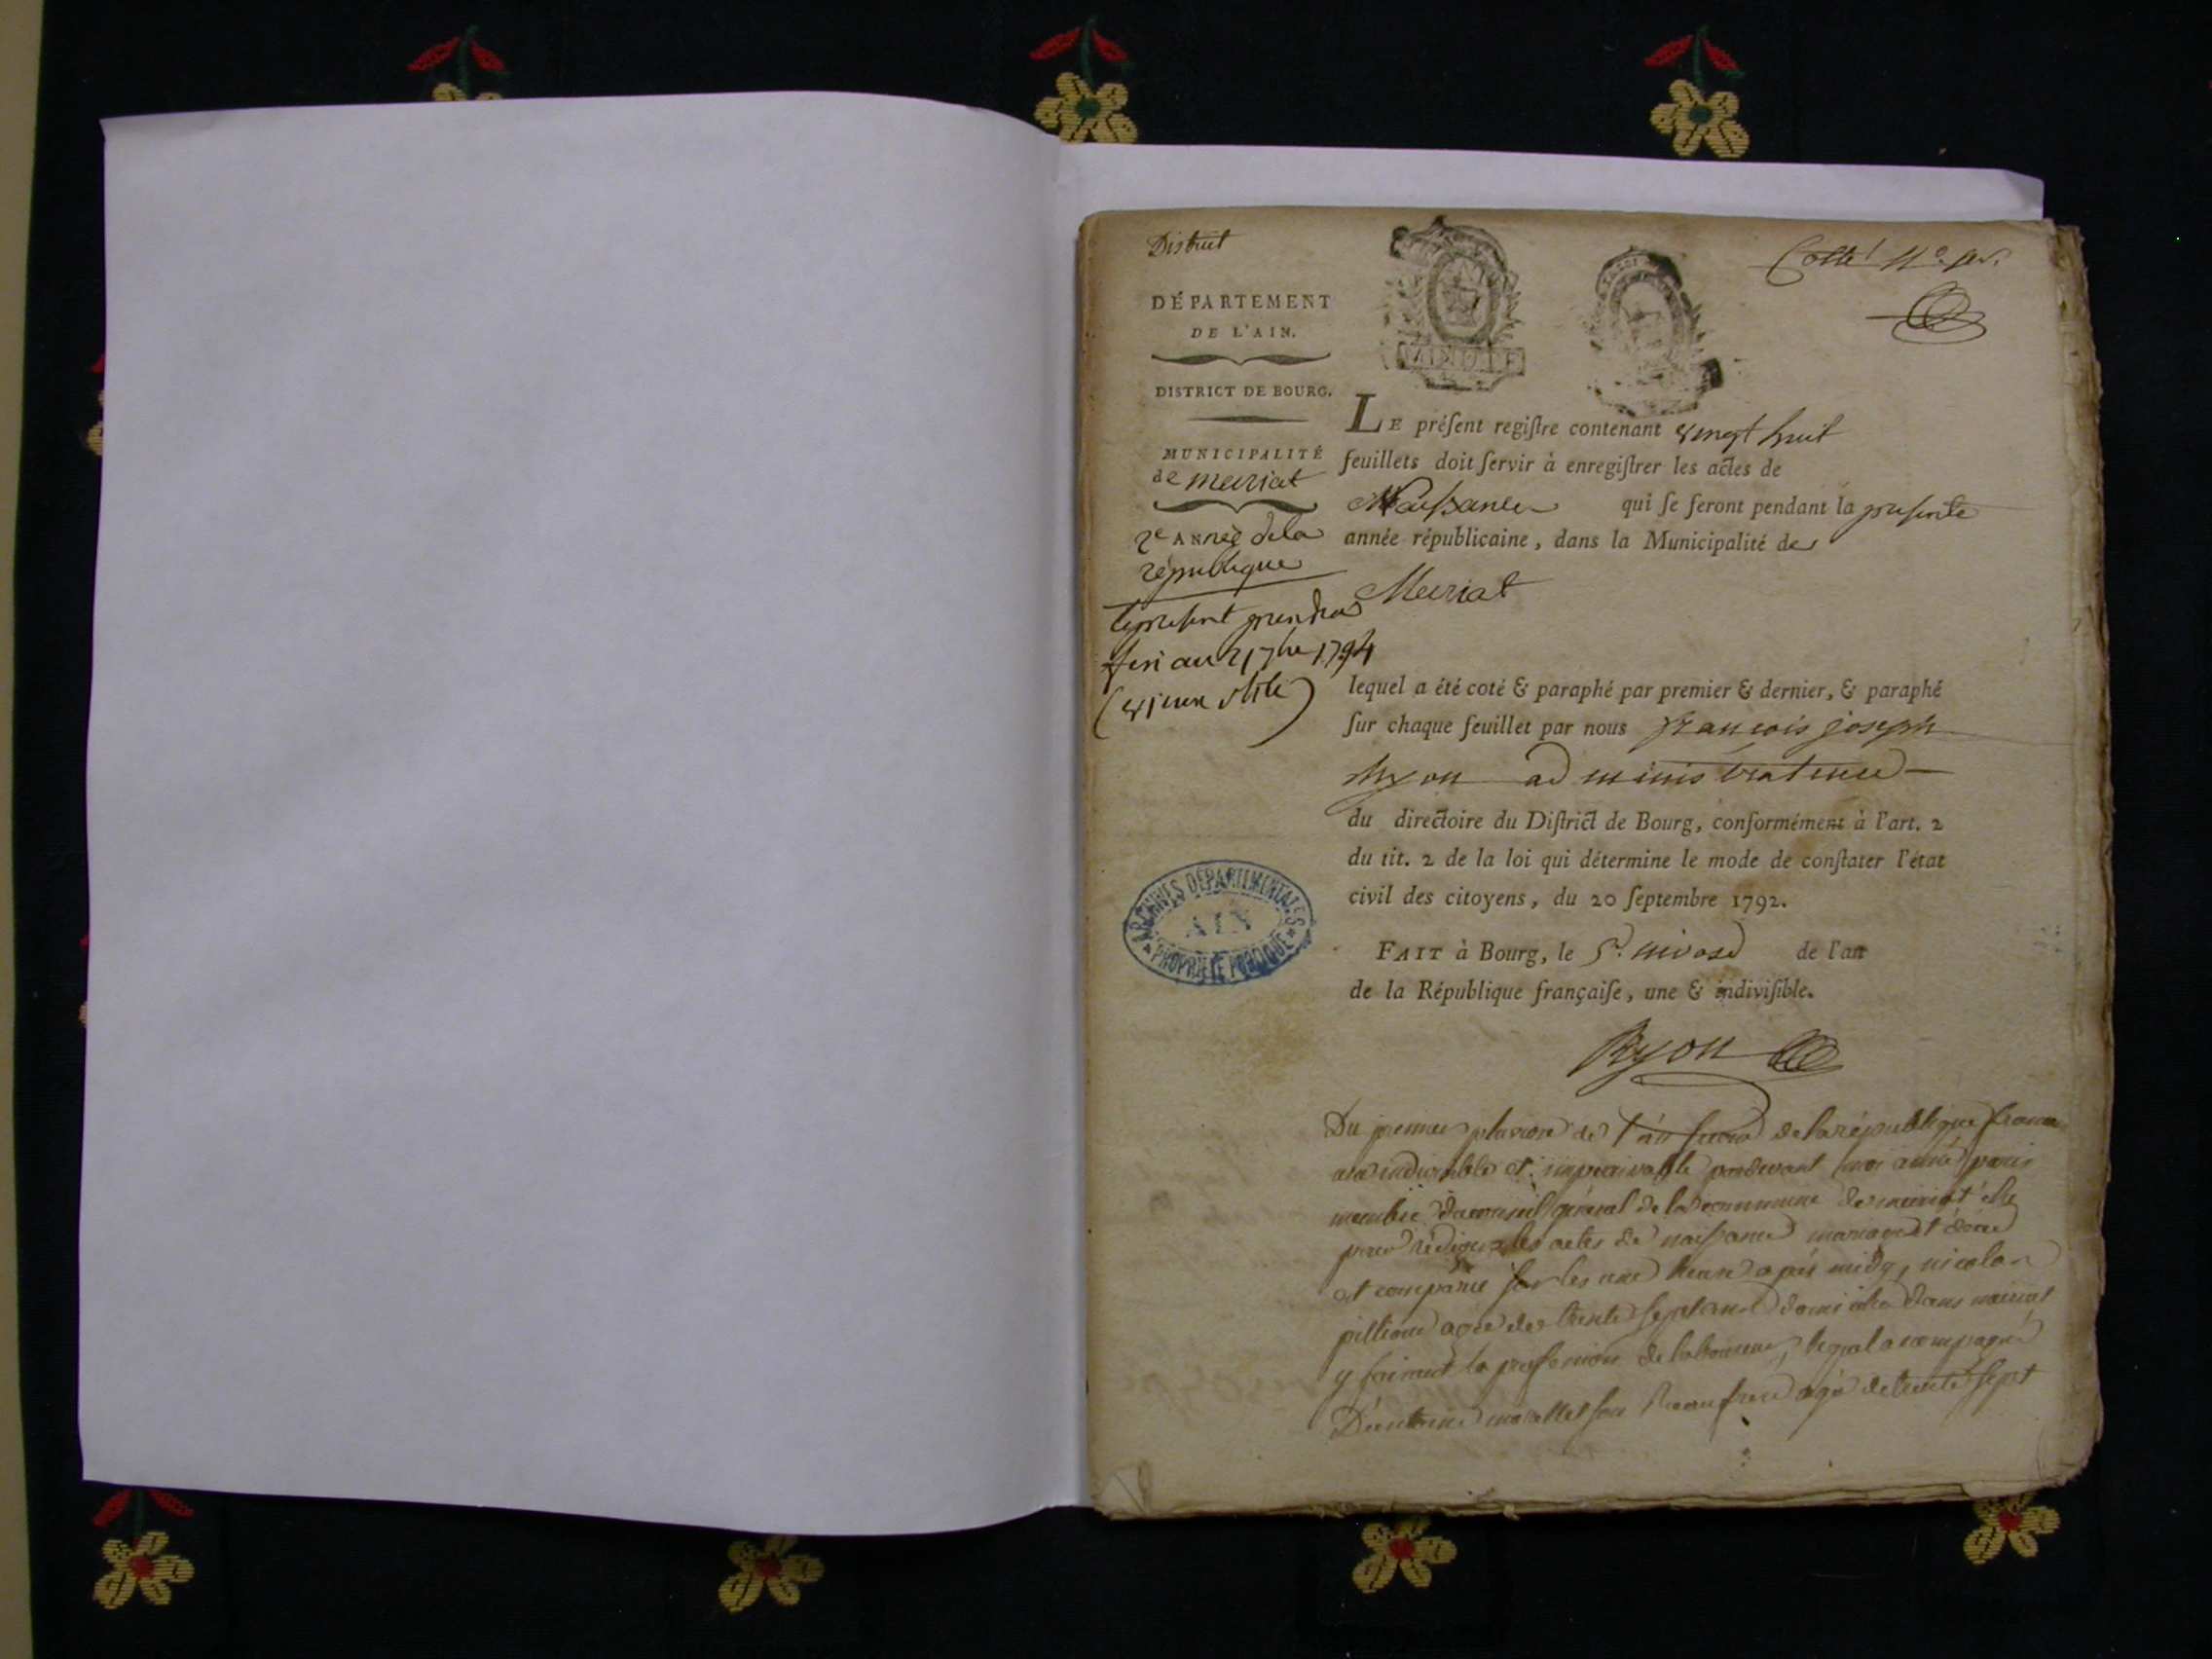 District
Cotté
DÉPARTEMENT
DE L'AIN.
DISTRICT DE BOURG.
MUNICIPALITÉ
de meiriat
2e Année de la
république
le present prendra
fin au 21 7bre 1794
(vieux stile)
LE préſent regiſtre contenant vingt huit
feuillets doit ſervir à enregiſtrer les actes de
Naissance qui ſe feront pendant la presente
année républicaine, dans la Municipalité de
Meiriat
lequel a été coté & paraphé par premier & dernier, & paraphé
ſur chaque feuillet par nous françois joseph
Ryon administrateur
du directoire du Diſtrict de Bourg, conformément à l'art. 2
du tit. 2 de la loi qui détermine le mode de conſtater l'état
civil des citoyens, du 20 ſeptembre 1792.
FAIT à Bourg, le 5. nivose de l'an
de la République françaiſe, une & indiviſible.
Ryon
ARCHIVES DÉPARTEMENTALES
AIN
PROPRIÉTÉ PUBLIQUE
Du premier pluviose de l'an second de la république
une indivisible et pardevant moi
membre du conseil général de la commune de meiriat élu
pour rédiger les actes de naissance mariage et décès
est comparu sur les une heure après midy, nicolas
agée de trente sept ans domicilié dans meiriat
y faisant la profession de laboureur, lequel accompagné
son beau frere agé de trente sept